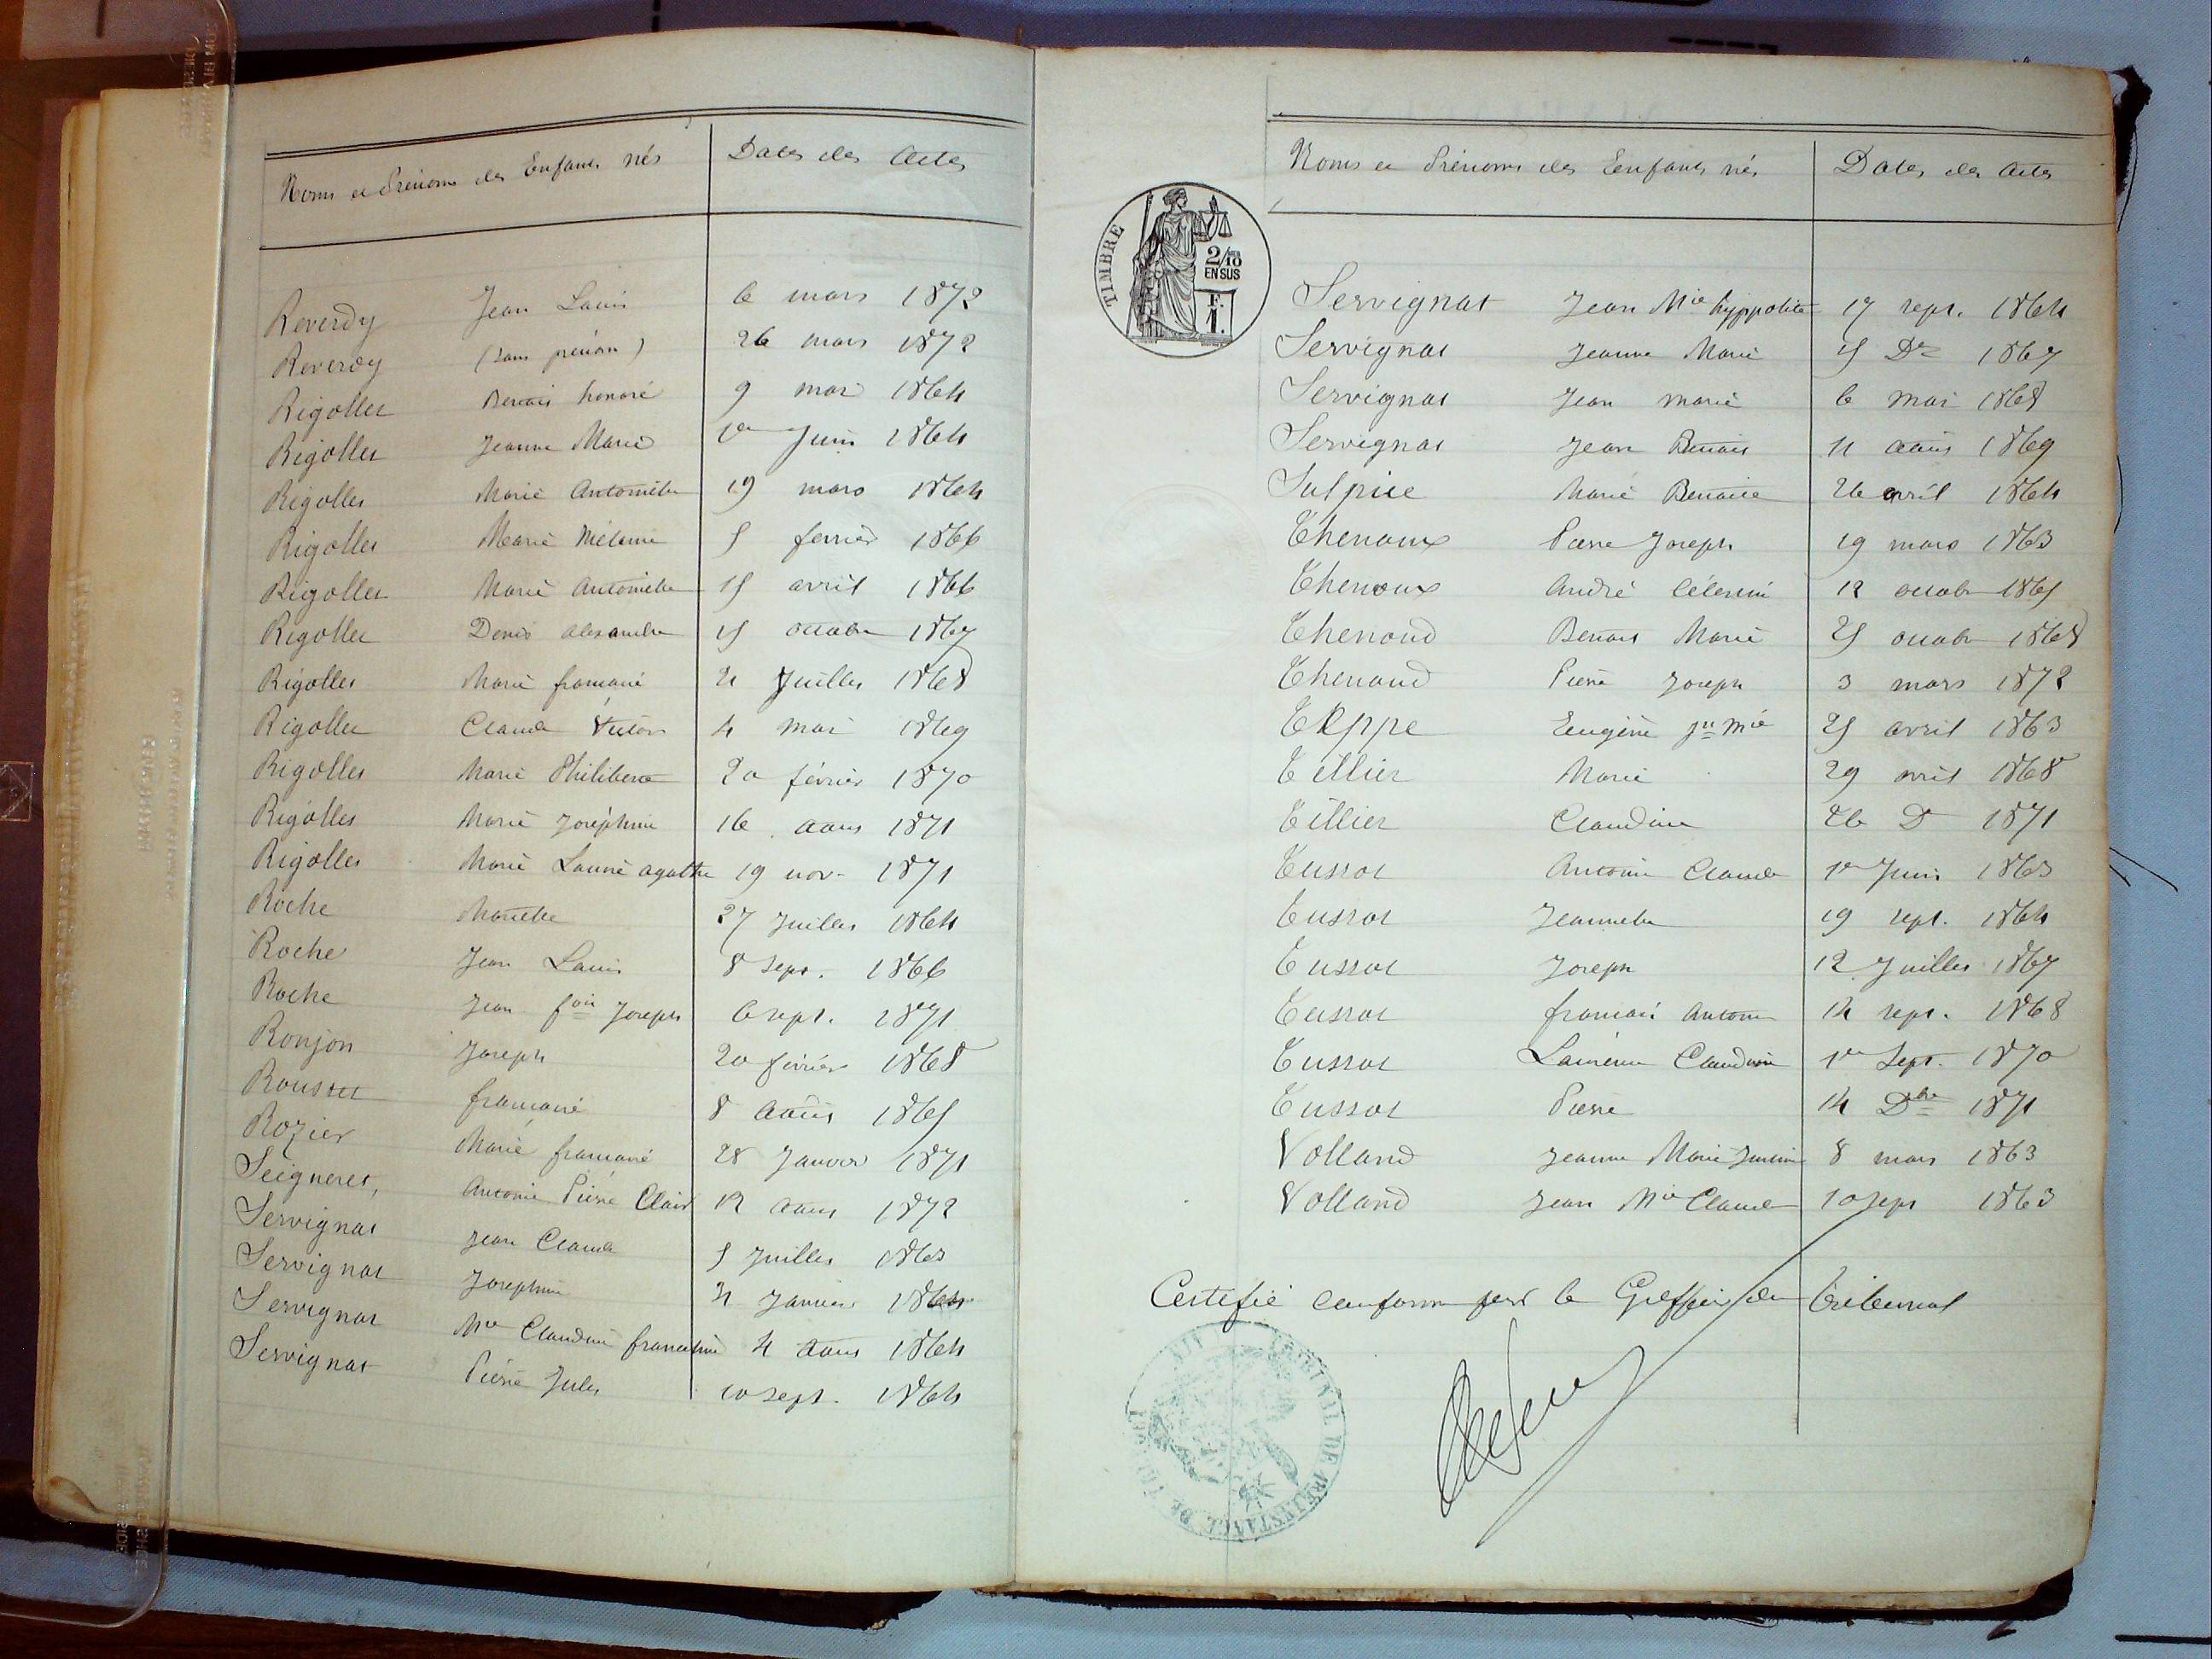 Noms et Prénoms des Enfants nés Dates des Actes
Reverdy Jean Louis 6 mars 1872
Reverdy (sans prénom) 26 mars 1872
Rigollet Benoit honoré 9 mai 1864
Rigollet Jeanne Marie 1er Juin 1864
Rigollet Marie Antoinette 19 mars 1864
Rigollet Marie Mélanie 5 février 1866
Rigollet Marie Antoinette 15 avril 1866
Rigollet Denis alexandre 15 octobre 1867
Rigollet Marie françoise 21 Juillet 1868
Rigollet Claude Victor 4 mai 1869
Rigollet Marie Philiberte 20 février 1870
Rigollet Marie Joséphine 16 aout 1871
Rigollet Marie Laurie agathe 19 nov. 1871
Roche Mariette 27 Juillet 1864
Roche Jean Louis 8 Sept. 1866
Roche Jean fois Joseph 6 sept. 1871
Ronjon Joseph 20 février 1868
Rousset françoise 8 Août 1865
Rozier Marie françoise 28 Janvier 1871
Seigneret, Antoine Pierre Clair 12 aout 1872
Servignat Jean Claude 5 Juillet 1863
Servignat Josephine 31 Janvier 1864
Servignat Mie Claudine francoise 4 Aout 1864
Servignat Pierre Jules 10 sept. 1864
Noms et Prénoms des Enfants nés Dates des Actes
TIMBRE
2/10 EN SUS
F.
1.
Servignat Jean Mie hyppolite 17 sept. 1864
Servignat Jeanne Marie 15 Dre 1867
Servignat Jean Marie 6 mai 1868
Servignat Jean Benoit 11 août 1869
Sulpice Marie Benoite 26 avril 1864
Thenoux Pierre Joseph 19 mars 1863
Thenoux André Célestin 12 octobr 1865
Thenoud Benoit Marie 25 octobr 1868
Thenoud Pierre Joseph 3 mars 1872
Teppe Eugène jn Mie 25 avril 1863
Tillier Marie 29 avril 1868
Tillier Claudine 26 D 1871
Tussot Antoine Claude 1er Juin 1863
Tussot Jeannette 19 sept. 1864
Tussot Joseph 12 Juillet 1867
Tussot françois Antoine 14 sept. 1868
Tussot Laurence Claudine 1er Sept. 1870
Tussot Pierre 14 Dbre 1871
Volland Jeanne Marie Justine 8 mars 1863
Volland Jean Mie Claude 10 sept 1863
Certifié conforme par le Greffier du tribunal
TRIBUNAL DE 1RE INSTANCE DE